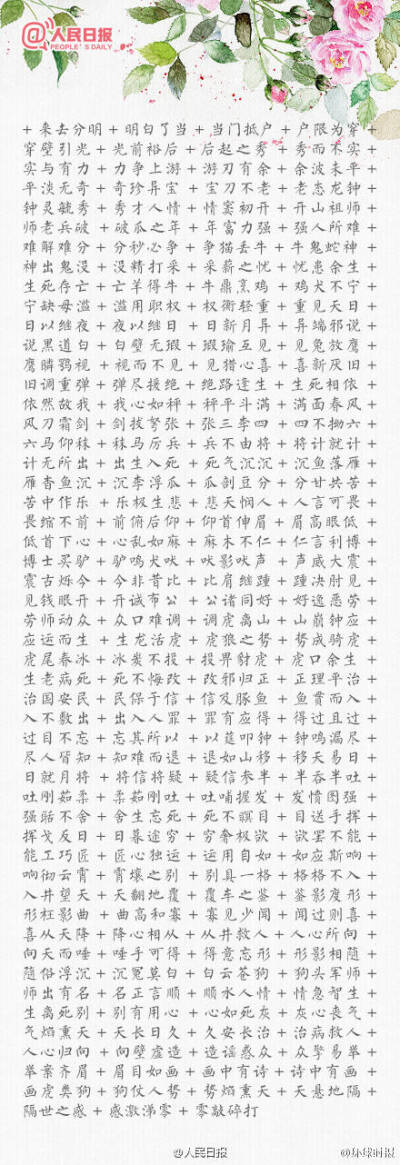 人民日报
PEOPLE'S DAILY
+ 来去分明 + 明白了当 + 当门抵户 + 户限为穿 +
穿壁引光 + 光前裕后 + 后起之秀 + 秀而不实 +
实与有力 + 力争上游 + 游刃有余 + 余波未平 +
平淡无奇 + 奇珍异宝 + 宝刀不老 + 老态龙钟 +
钟灵毓秀 + 秀才人情 + 情窦初开 + 开山祖师 +
师老兵破 + 破瓜之年 + 年富力强 + 强人所难 +
难解难分 + 分秒必争 + 争猫丢牛 + 牛鬼蛇神 +
神出鬼没 + 没精打采 + 采薪之忧 + 忧患余生 +
生死存亡 + 亡羊得牛 + 牛鼎烹鸡 + 鸡犬不宁 +
宁缺毋滥 + 滥用职权 + 权衡轻重 + 重见天日 +
日以继夜 + 夜以继日 + 日新月异 + 异端邪说 +
说黑道白 + 白璧无瑕 + 瑕瑜互见 + 见兔放鹰 +
鹰瞵鹗视 + 视而不见 + 见猎心喜 + 喜新厌旧 +
旧调重弹 + 弹尽援绝 + 绝路逢生 + 生死相依 +
依然故我 + 我心如秤 + 秤平斗满 + 满面春风 +
风刀霜剑 + 剑拔弩张 + 张三李四 + 四不拗六 +
六马仰秣 + 秣马厉兵 + 兵不由将 + 将计就计 +
计无所出 + 出生入死 + 死气沉沉 + 沉鱼落雁 +
雁杳鱼沉 + 沉李浮瓜 + 瓜剖豆分 + 分甘共苦 +
苦中作乐 + 乐极生悲 + 悲天悯人 + 人言可畏 +
畏缩不前 + 前俯后仰 + 仰首伸眉 + 眉高眼低 +
低首下心 + 心乱如麻 + 麻木不仁 + 仁言利博 +
博士买驴 + 驴鸣犬吠 + 吠影吠声 + 声威大震 +
震古烁今 + 今非昔比 + 比肩继踵 + 踵决肘见 +
见钱眼开 + 开诚布公 + 公诸同好 + 好逸恶劳 +
劳师动众 + 众口难调 + 调虎离山 + 山崩钟应 +
应运而生 + 生龙活虎 + 虎狼之势 + 势成骑虎 +
虎尾春冰 + 冰炭不投 + 投畀豺虎 + 虎口余生 +
生老病死 + 死不悔改 + 改邪归正 + 正理平治 +
治国安民 + 民保于信 + 信及豚鱼 + 鱼贯而入 +
入不敷出 + 出入人罪 + 罪有应得 + 得过且过 +
过目不忘 + 忘其所以 + 以莛叩钟 + 钟鸣漏尽 +
尽人皆知 + 知难而退 + 退如山移 + 移天易日 +
日就月将 + 将信将疑 + 疑信参半 + 半吞半吐 +
吐刚茹柔 + 柔茹刚吐 + 吐哺握发 + 发愤图强 +
强聒不舍 + 舍生忘死 + 死不瞑目 + 目送手挥 +
挥戈反日 + 日暮途穷 + 穷奢极欲 + 欲罢不能 +
能工巧匠 + 匠心独运 + 运用自如 + 如应斯响 +
响彻云霄 + 霄壤之别 + 别具一格 + 格格不入 +
入井望天 + 天翻地覆 + 覆车之鉴 + 鉴影度形 +
形枉影曲 + 曲高和寡 + 寡见少闻 + 闻过则喜 +
喜从天降 + 降心相从 + 从井救人 + 人心所向 +
向天而唾 + 唾手可得 + 得意忘形 + 形影相随 +
随俗浮沉 + 沉冤莫白 + 白云苍狗 + 狗头军师 +
师出有名 + 名正言顺 + 顺水人情 + 情急智生 +
生离死别 + 别有用心 + 心如死灰 + 灰心丧气 +
气焰熏天 + 天长日久 + 久安长治 + 治病救人 +
人心归向 + 向壁虚造 + 造谣惑众 + 众擎易举 +
举案齐眉 + 眉目如画 + 画中有诗 + 诗中有画 +
画虎类狗 + 狗仗人势 + 势焰熏天 + 天悬地隔 +
隔世之感 + 感激涕零 + 零敲碎打
@人民日报
@环球时报